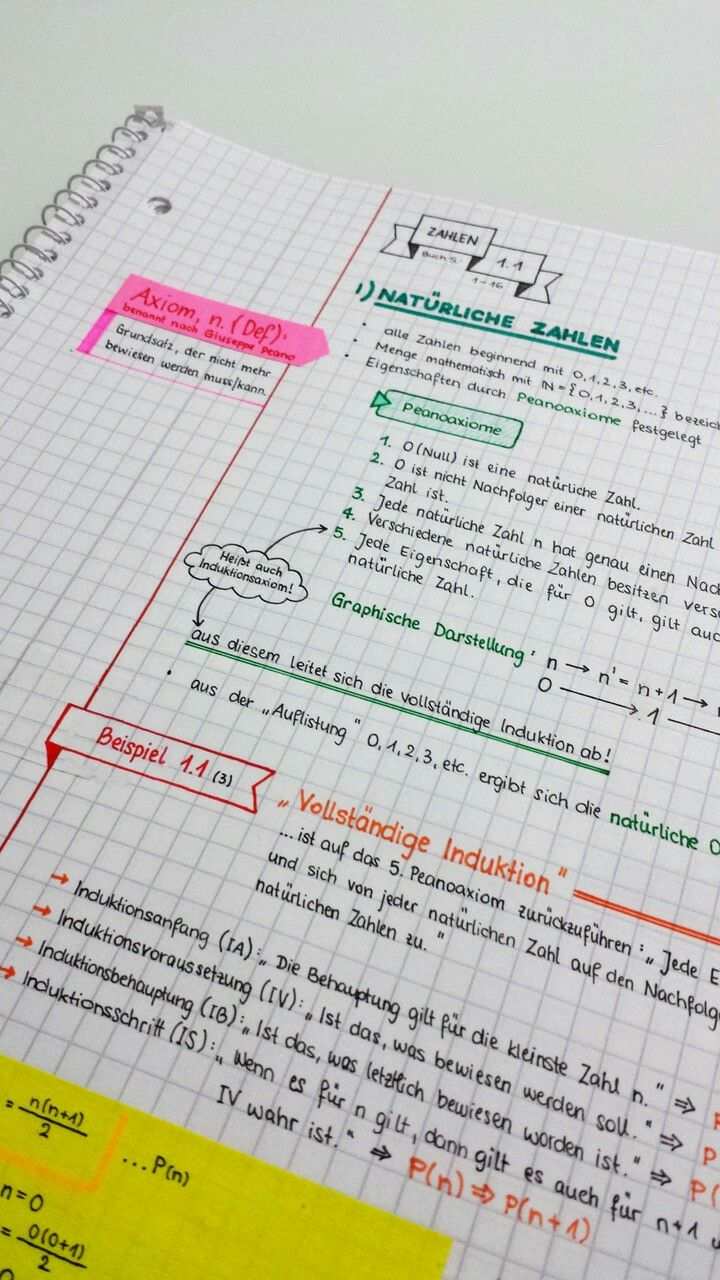 ZAHLEN
Buch S.
1.1
1-16
1) NATÜRLICHE ZAHLEN
• alle Zahlen beginnend mit 0,1,2,3, etc.
• Menge mathematisch mit ℕ = {0,1,2,3,...} bezeich
• Eigenschaften durch Peanoaxiome festgelegt
Axiom, n. (Def):
benannt nach Giuseppe Peano
Grundsatz, der nicht mehr
bewiesen werden muss/kann.
Peanoaxiome
1. 0 (Null) ist eine natürliche Zahl.
2. 0 ist nicht Nachfolger einer natürlichen Zahl
Zahl ist.
3. Jede natürliche Zahl n hat genau einen Nach
4. Verschiedene natürliche Zahlen besitzen versc
5. Jede Eigenschaft, die für 0 gilt, gilt auch
natürliche Zahl.
Heißt auch
Induktionsaxiom!
Graphische Darstellung: n → n' = n+1 →
0 → 1
aus diesem leitet sich die vollständige Induktion ab!
• aus der „Auflistung" 0,1,2,3, etc. ergibt sich die natürliche O
Beispiel 1.1 (3)
„Vollständige Induktion"
...ist auf das 5. Peanoaxiom zurückzuführen: „Jede E
und sich von jeder natürlichen Zahl auf den Nachfolge
natürlichen Zahlen zu."
→ Induktionsanfang (IA): „Die Behauptung gilt für die kleinste Zahl n." ⇒
→ Induktionsvoraussetzung (IV): „Ist das, was bewiesen werden soll." ⇒ P
→ Induktionsbehauptung (IB): „Ist das, was letztlich bewiesen worden ist." ⇒ P(
→ Induktionsschritt (IS): „Wenn es für n gilt, dann gilt es auch für n+1 u
IV wahr ist." ⇒ P(n) ⇒ P(n+1)
= n(n+1)/2
...P(n)
n=0
= 0(0+1)/2